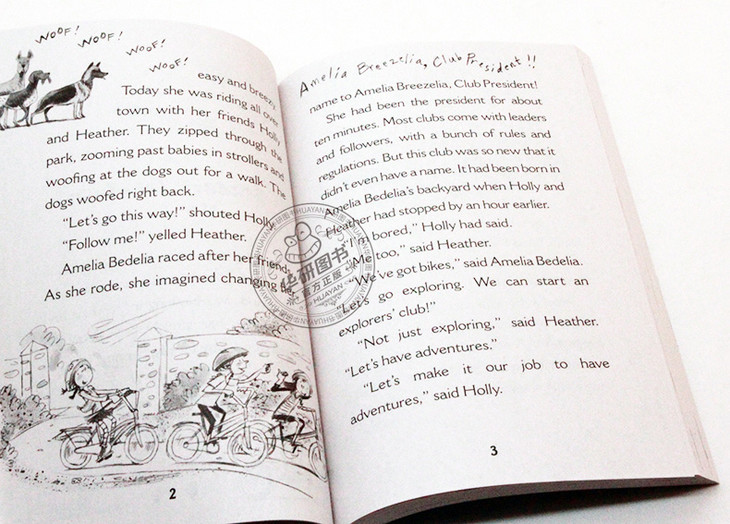 WOOF!
WOOF!
WOOF!
WOOF!
easy and breezy.
Today she was riding all over
town with her friends Holly
and Heather. They zipped through the
park, zooming past babies in strollers and
woofing at the dogs out for a walk. The
dogs woofed right back.
“Let’s go this way!” shouted Holly.
“Follow me!” yelled Heather.
Amelia Bedelia raced after her friends.
As she rode, she imagined changing her
2
Amelia Breezelia, Club President!!
name to Amelia Breezelia, Club President!
She had been the president for about
ten minutes. Most clubs come with leaders
and followers, with a bunch of rules and
regulations. But this club was so new that it
didn’t even have a name. It had been born in
Amelia Bedelia’s backyard when Holly and
Heather had stopped by an hour earlier.
“I’m bored,” Holly had said.
“Me too,” said Heather.
“We’ve got bikes,” said Amelia Bedelia.
“Let’s go exploring. We can start an
explorers’ club!”
“Not just exploring,” said Heather.
“Let’s have adventures.”
“Let’s make it our job to have
adventures,” said Holly.
3
华研图书
官方正版
HUAYAN